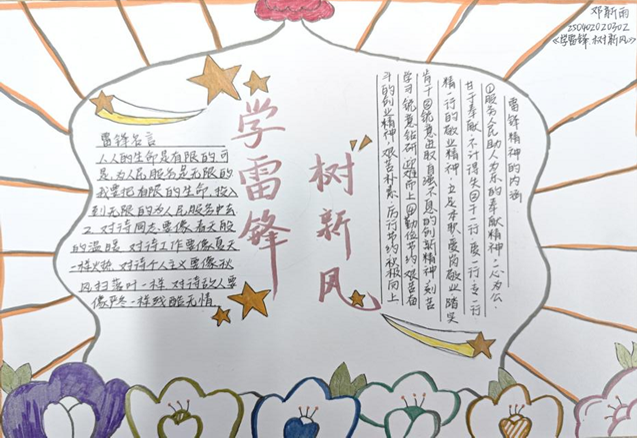 邓新雨
250402020302
《学雷锋 树新风》
学雷锋
树新风
雷锋名言
1、人的生命是有限的,可
是,为人民服务是无限的
我要把有限的生命,投入
到无限的为人民服务中去
2、对待同志要像春天般
的温暖,对待工作要像夏天
一样火热,对待个人主义要像秋
风扫落叶一样,对待敌人要
像严冬一样残酷无情
雷锋精神的内涵
①服务人民、助人为乐的奉献精神,一心为公、
甘于奉献、不计得失②干一行、爱一行、专一行
精一行的敬业精神,立足本职、爱岗敬业、踏实
肯干③锐意进取、自强不息的创新精神,刻苦
学习、锐意钻研、迎难而上④勤俭节约、艰苦奋
斗的创业精神,艰苦朴素、厉行节约、积极向上